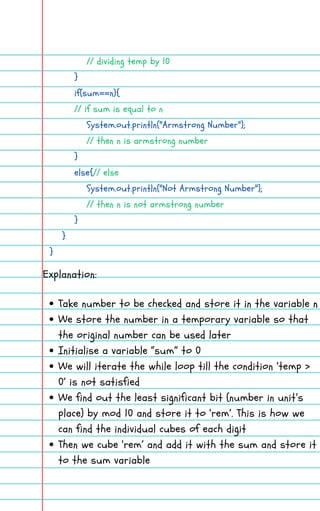 // dividing temp by 10
}
if(sum==n){
// if sum is equal to n
System.out.println("Armstrong Number");
// then n is armstrong number
}
else{// else
System.out.println("Not Armstrong Number");
// then n is not armstrong number
}
}
}
Explanation:
• Take number to be checked and store it in the variable n
• We store the number in a temporary variable so that
the original number can be used later
• Initialise a variable "sum" to 0
• We will iterate the while loop till the condition 'temp >
0' is not satisfied
• We find out the least significant bit (number in unit's
place) by mod 10 and store it to 'rem'. This is how we
can find the individual cubes of each digit
• Then we cube 'rem' and add it with the sum and store it
to the sum variable